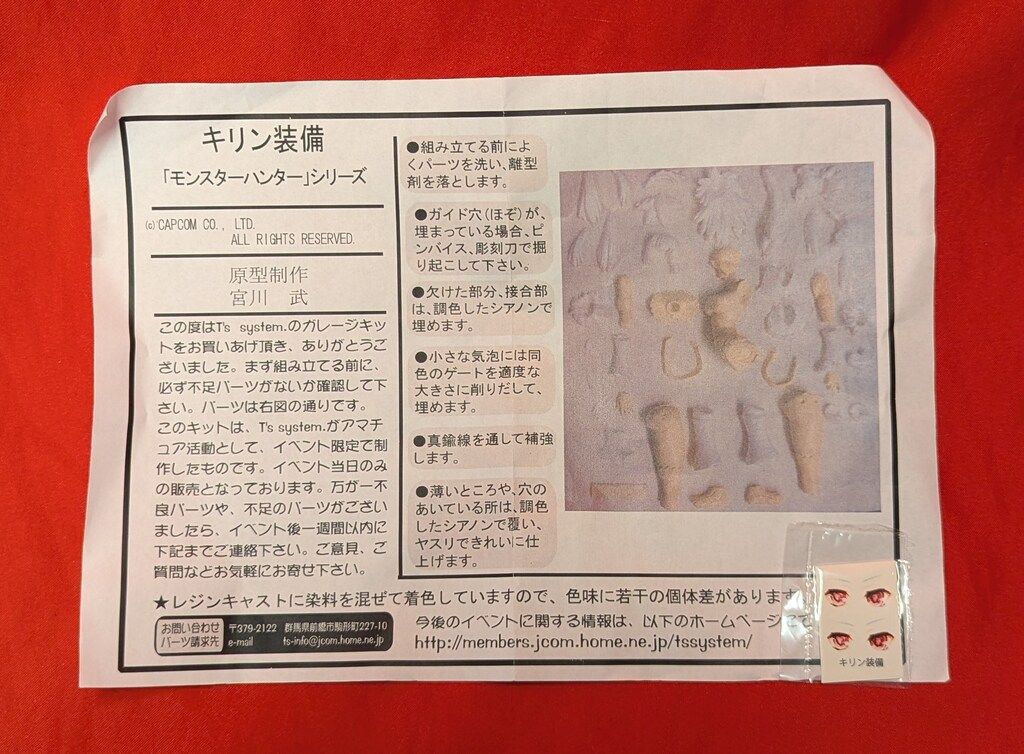 キリン装備
「モンスターハンター」シリーズ
(c)CAPCOM CO., LTD.
ALL RIGHTS RESERVED.
原型制作
宮川　武
この度はT's system.のガレージキッ
トをお買いあげ頂き、ありがとうご
ざいました。まず組み立てる前に、
必ず不足パーツがないか確認して下
さい。パーツは右図の通りです。
このキットは、T's system.がアマチ
ュア活動として、イベント限定で制
作したものです。イベント当日のみ
の販売となっております。万が一不
良パーツや、不足のパーツがござい
ましたら、イベント後一週間以内に
下記までご連絡下さい。ご意見、ご
質問などお気軽にお寄せ下さい。
●組み立てる前によ
くパーツを洗い、離型
剤を落とします。
●ガイド穴（ほぞ）が、
埋まっている場合、ピ
ンバイス、彫刻刀で掘
り起こして下さい。
●欠けた部分、接合部
は、調色したシアノンで
埋めます。
●小さな気泡には同
色のゲートを適度な
大きさに削りだして、
埋めます。
●真鍮線を通して補強
します。
●薄いところや、穴の
あいている所は、調色
したシアノンで覆い、
ヤスリできれいに仕
上げます。
★レジンキャストに染料を混ぜて着色していますので、色味に若干の個体差があります
お問い合わせ
パーツ請求先
〒379-2122　群馬県前橋市駒形町227-10
e-mail　ts-info@jcom.home.ne.jp
今後のイベントに関する情報は、以下のホームページにて
http://members.jcom.home.ne.jp/tssystem/
キリン装備